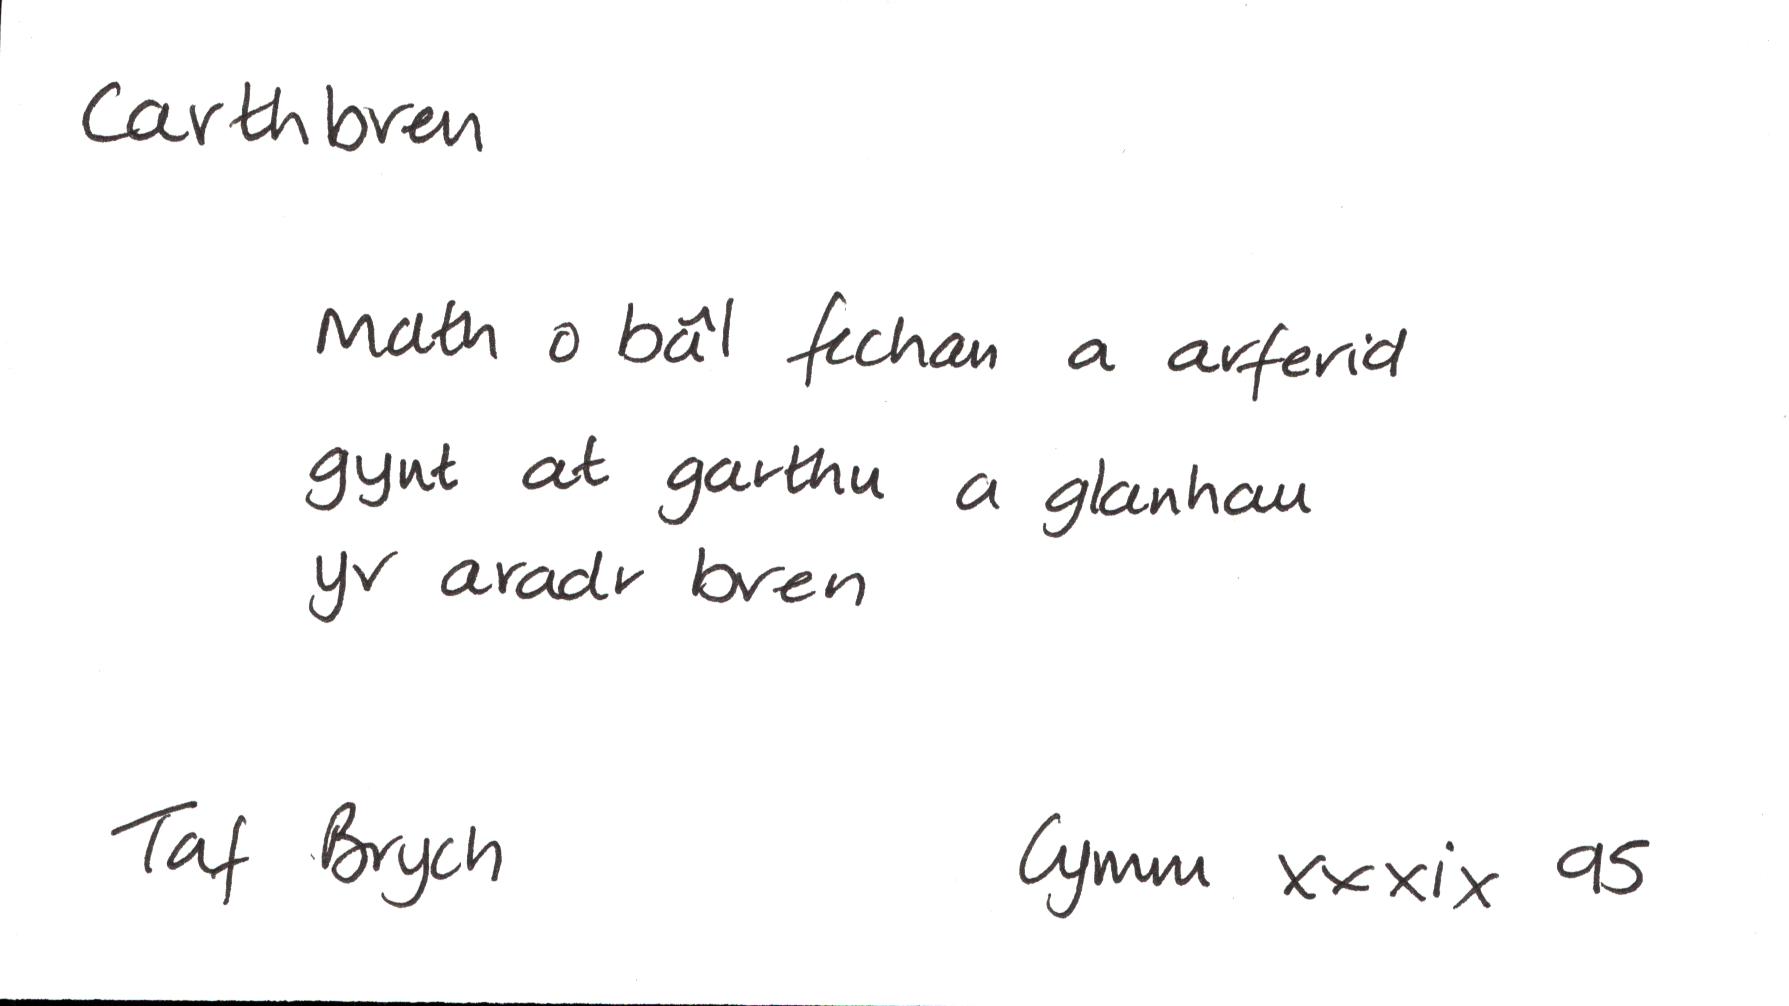 Carthbren
Math o bâl fechan a arferid
gynt at garthu a glanhau
yr aradr bren
Taf Brych Cymm xxxix 95